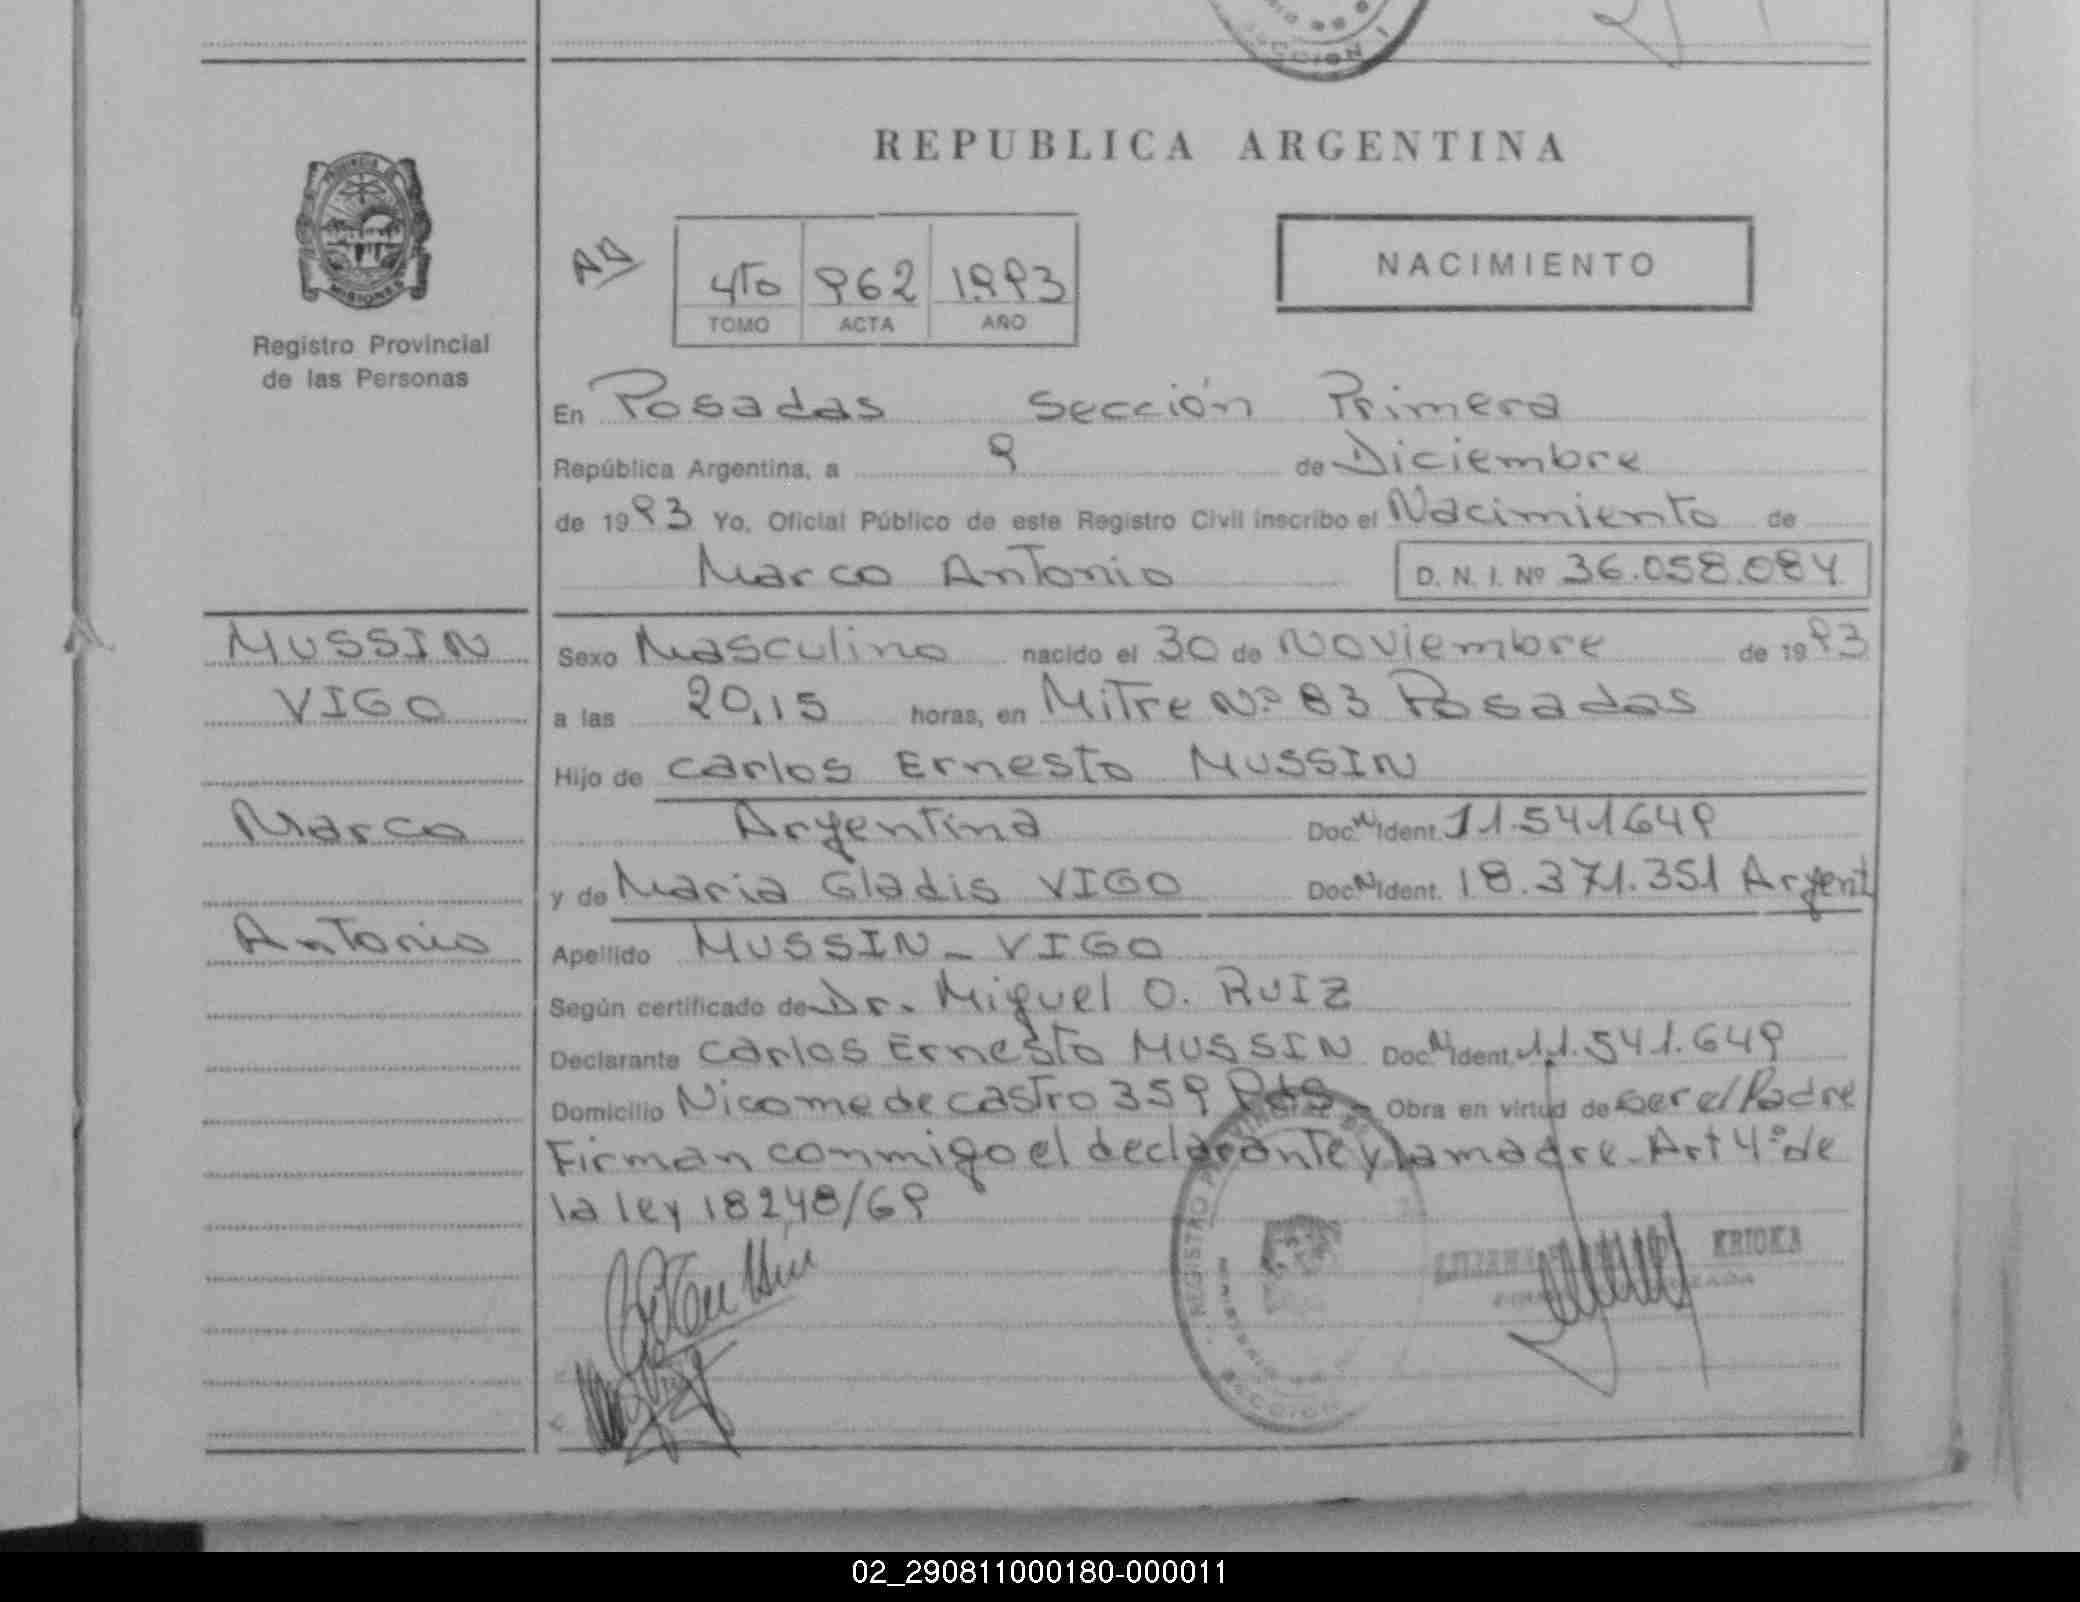 REPUBLICA ARGENTINA
PROVINCIA DE
MISIONES
Registro Provincial
de las Personas
4To 962 1993
TOMO ACTA AÑO
NACIMIENTO
En Posadas Sección Primera
República Argentina, a 9 de Diciembre
de 1993 Yo, Oficial Público de este Registro Civil inscribo el Nacimiento de
Marco Antonio D. N. I. Nº 36.058.084
MUSSIN
VIGO
Marco
Antonio
Sexo Masculino nacido el 30 de Noviembre de 1993
a las 20,15 horas, en Mitre Nº 83 Posadas
Hijo de Carlos Ernesto MUSSIN
Argentina Doc. N. Ident. 11.541649
y de Maria Gladis VIGO Doc. N. Ident. 18.371.351 Argent
Apellido MUSSIN - VIGO
Según certificado de Dr. Miguel O. RUIZ
Declarante Carlos Ernesto MUSSIN Doc. N. Ident. 11.541.649
Domicilio Nicomede Castro 359 Pdas - Obra en virtud de ser el Padre
Firman conmigo el declarante y la madre - Art 4º de
la ley 18248/69
REGISTRO
MINISTERIO
SECCION
02_290811000180-000011